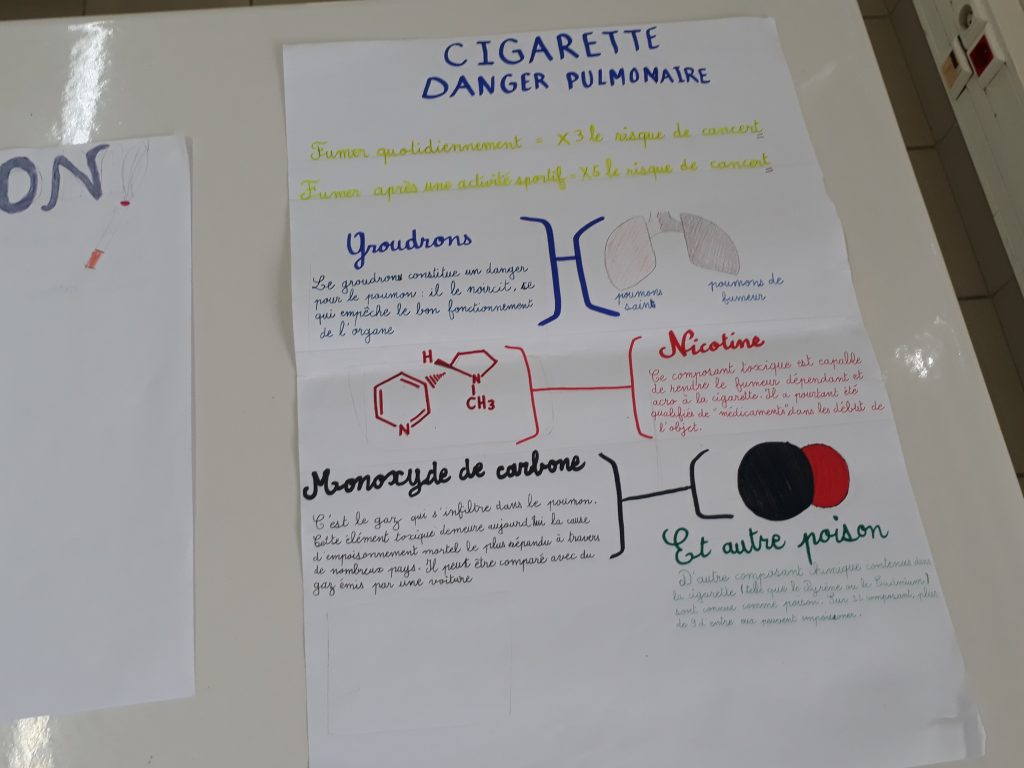 ON
CIGARETTE
DANGER PULMONAIRE
Fumer quotidiennement = X3 le risque de cancert
Fumer après une activité sportif = X5 le risque de cancert
Groudrons
Le groudrons constitue un danger
pour le poumon : il le noircit, se
qui empêche le bon fonctionnement
de l'organe
poumons
saint
poumons de
fumeur
H
N
CH3
N
Nicotine
Ce composant toxique est capable
de rendre le fumeur dépendant et
acro à la cigarette. Il a pourtant été
qualifiés de "médicaments" dans les débût de
l'objet.
Monoxyde de carbone
C'est le gaz qui s'infiltre dans le poumon.
Cette élément toxique demeure aujourd'hui la cause
d'empoisonnement mortel le plus répandu à travers
de nombreux pays. Il peut être comparé avec du
gaz émis par une voiture
Et autre poison
D'autre composant chimique contenues dans
la cigarette (telle que le Pyrène ou le Cadmium)
sont connue comme poison. Sur composant, plus
de d'entre eux peuvent empoisonner.